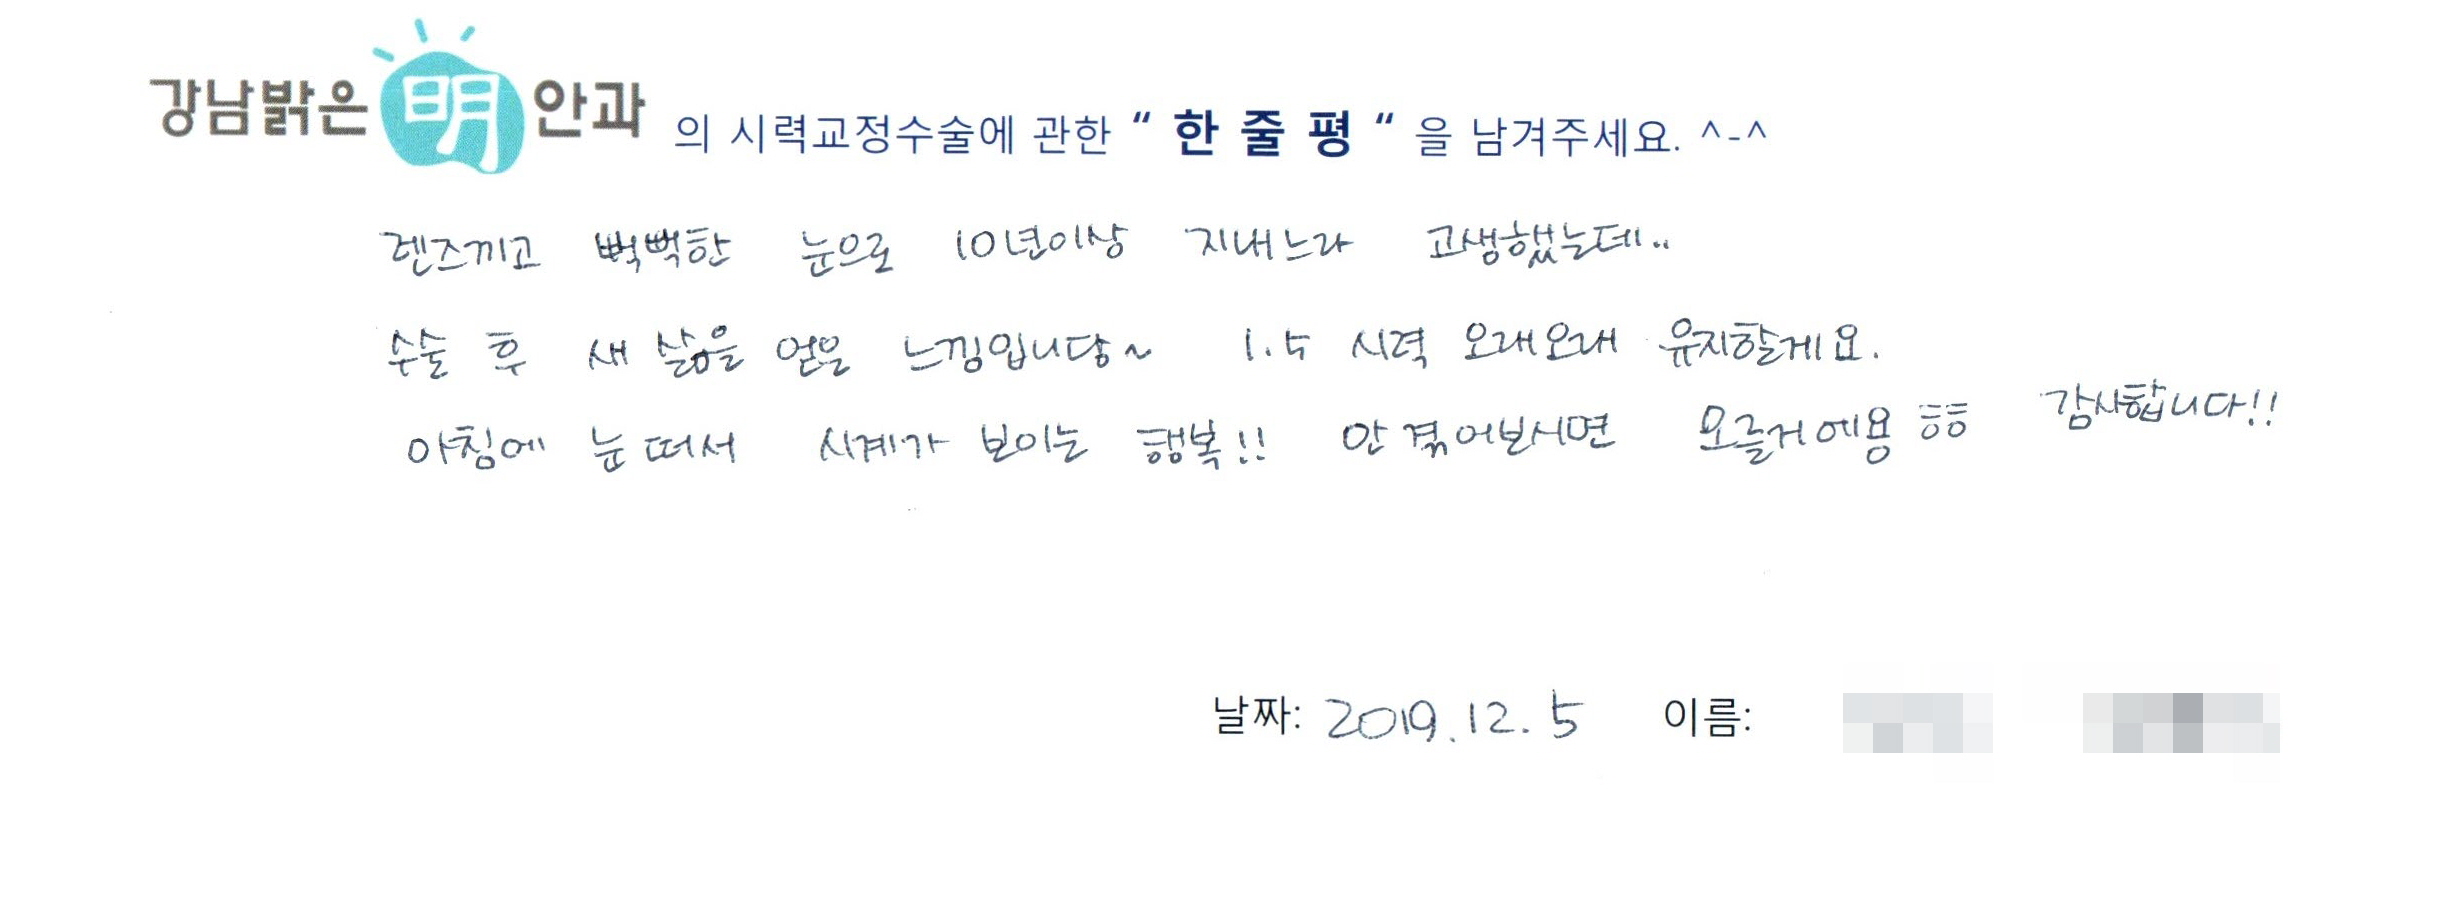 강남밝은明안과 의 시력교정수술에 관한 “ 한 줄 평 “ 을 남겨주세요. ^-^
렌즈끼고 뻑뻑한 눈으로 10년이상 지내느라 고생했는데..
수술 후 새 삶을 얻은 느낌입니당~ 1.5 시력 오래오래 유지할게요.
아침에 눈 떠서 시계가 보이는 행복!! 안 겪어보시면 모를거에용 ㅎㅎ 감사합니다!!
날짜: 2019.12.5 이름: